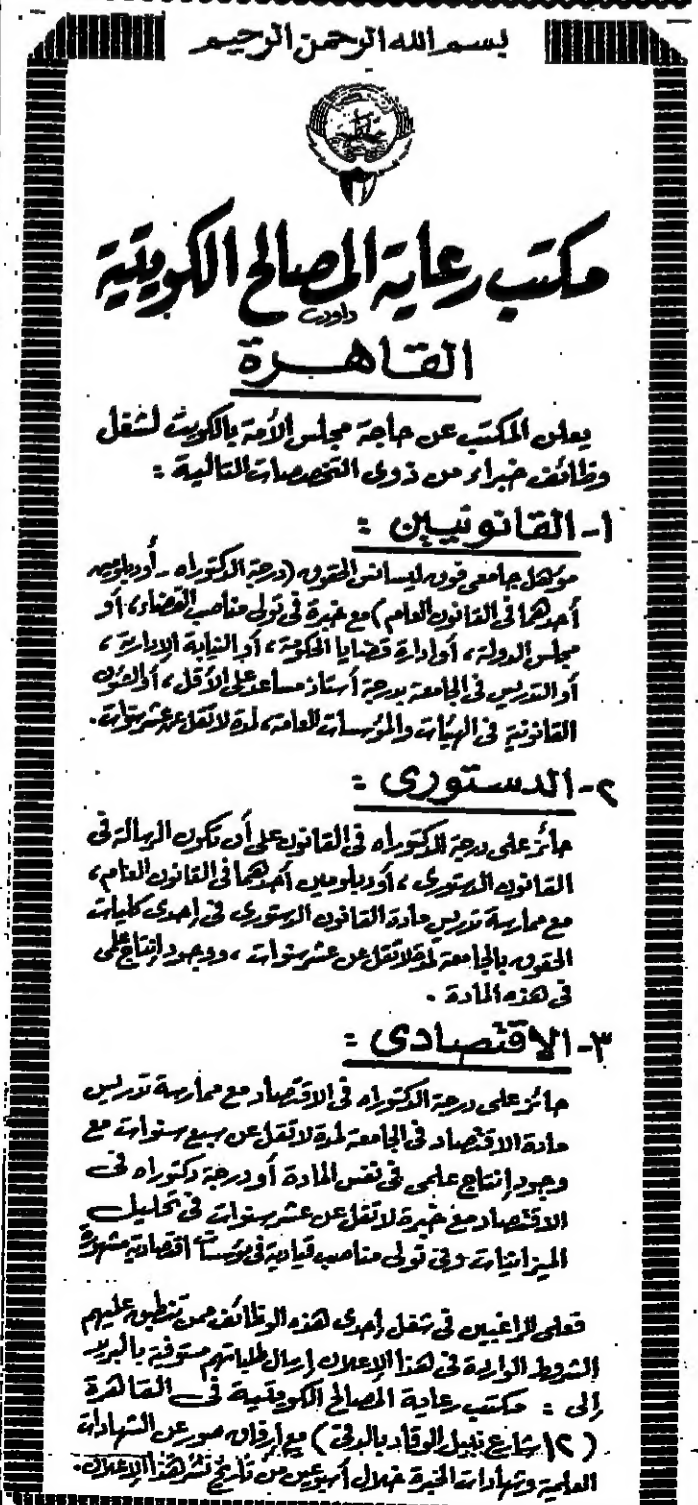 بسم الله الرحمن الرحيم
مكتب رعاية المصالح الكويتية
القاهرة
يعلن المكتب عن حاجة مجلس الأمة بالكويت لشغل
وظائف خبراء من ذوى التخصصات التالية :
١- القانونيين :
مؤهل جامعى فوق ليسانس الحقوق (درجة الدكتوراه - أو دبلومين
أحدهما فى القانون العام) مع خبرة فى تولى مناصب القضاء ، أو
مجلس الدولة ، أو إدارة قضايا الحكومة ، أو النيابة الإدارية ،
أو التدريس فى الجامعة بدرجة أستاذ مساعد على الأقل ، أو الشئون
القانونية فى الهيئات والمؤسسات العامة ، لمدة لا تقل عن عشر سنوات .
٢- الدستورى :
حائز على درجة الدكتوراه فى القانون على أن تكون الرسالة فى
القانون الدستورى ، أو دبلومين أحدهما فى القانون العام ،
مع ممارسة تدريس مادة القانون الدستورى فى إحدى كليات
الحقوق بالجامعة لمدة لا تقل عن عشر سنوات ، ووجود إنتاج علمى
فى هذه المادة .
٣- الاقتصادى :
حائز على درجة الدكتوراه فى الاقتصاد مع ممارسة تدريس
مادة الاقتصاد فى الجامعة لمدة لا تقل عن سبع سنوات مع
وجود إنتاج علمى فى نفس المادة أو درجة دكتوراه فى
الاقتصاد مع خبرة لا تقل عن عشر سنوات فى تحليل
الميزانيات وفى تولى مناصب قيادية فى مؤسسات اقتصادية مشهورة
فعلى الراغبين فى شغل إحدى هذه الوظائف ممن تنطبق عليهم
الشروط الواردة فى هذا الإعلان إرسال طلباتهم مستوفية بالبريد
إلى : مكتب رعاية المصالح الكويتية فى القاهرة
(١٢ شارع نبيل الوقاد بالدقى) مع إرفاق صور عن الشهادات
العلمية وشهادات الخبرة خلال أسبوعين من تاريخ نشر هذا الإعلان .